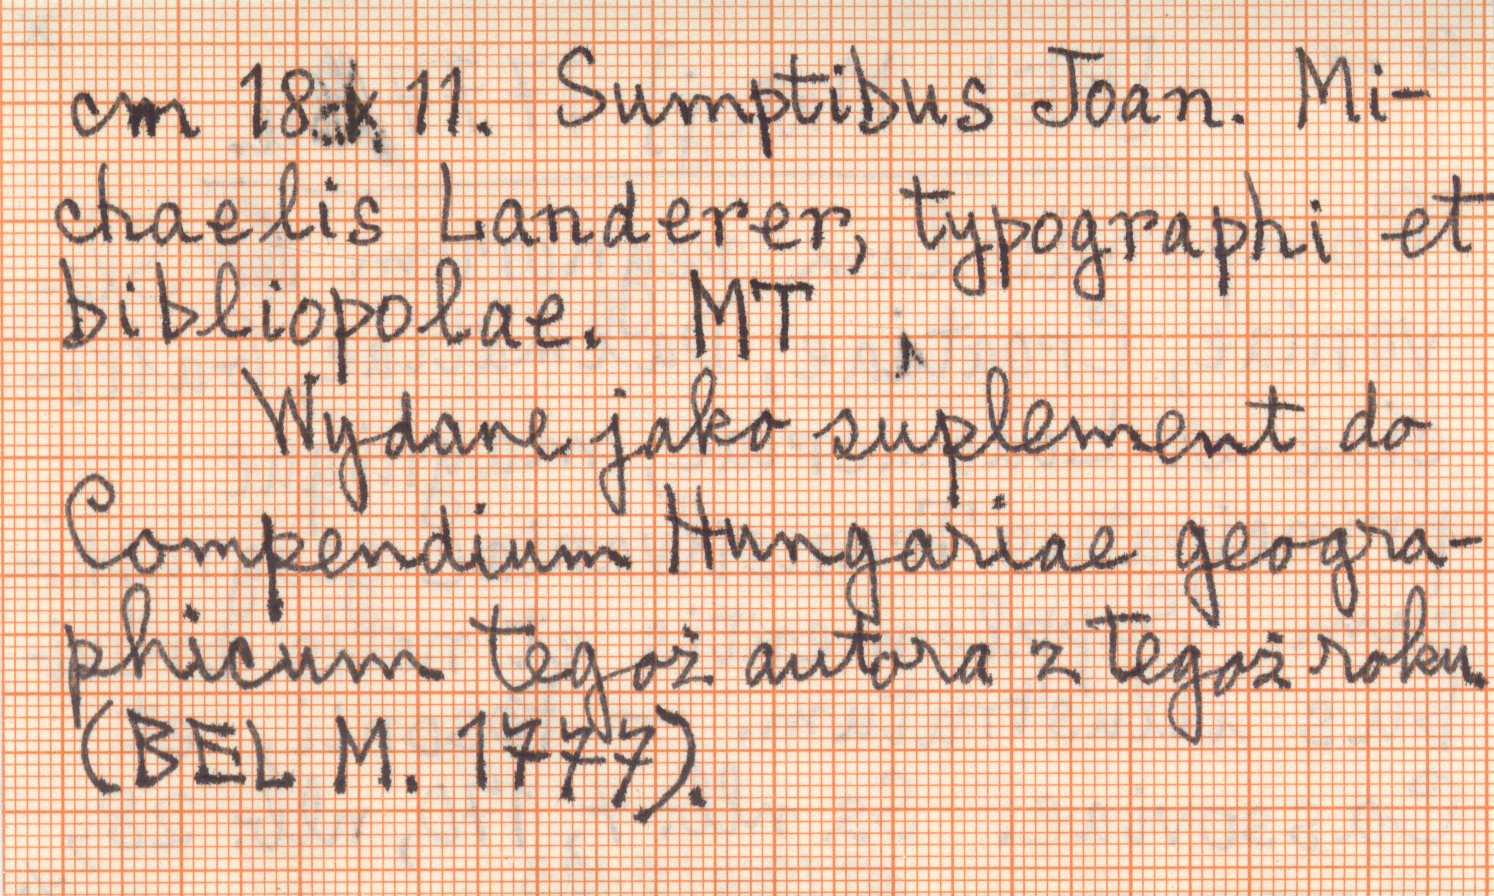 cm 18 x 11. Sumptibus Joan. Mi-
chaelis Landerer, typographi et
bibliopolae. MT
Wydane jako suplement do
Compendium Hungariae geogra-
phicum tegoż autora z tegoż roku
(BEL M. 1777).